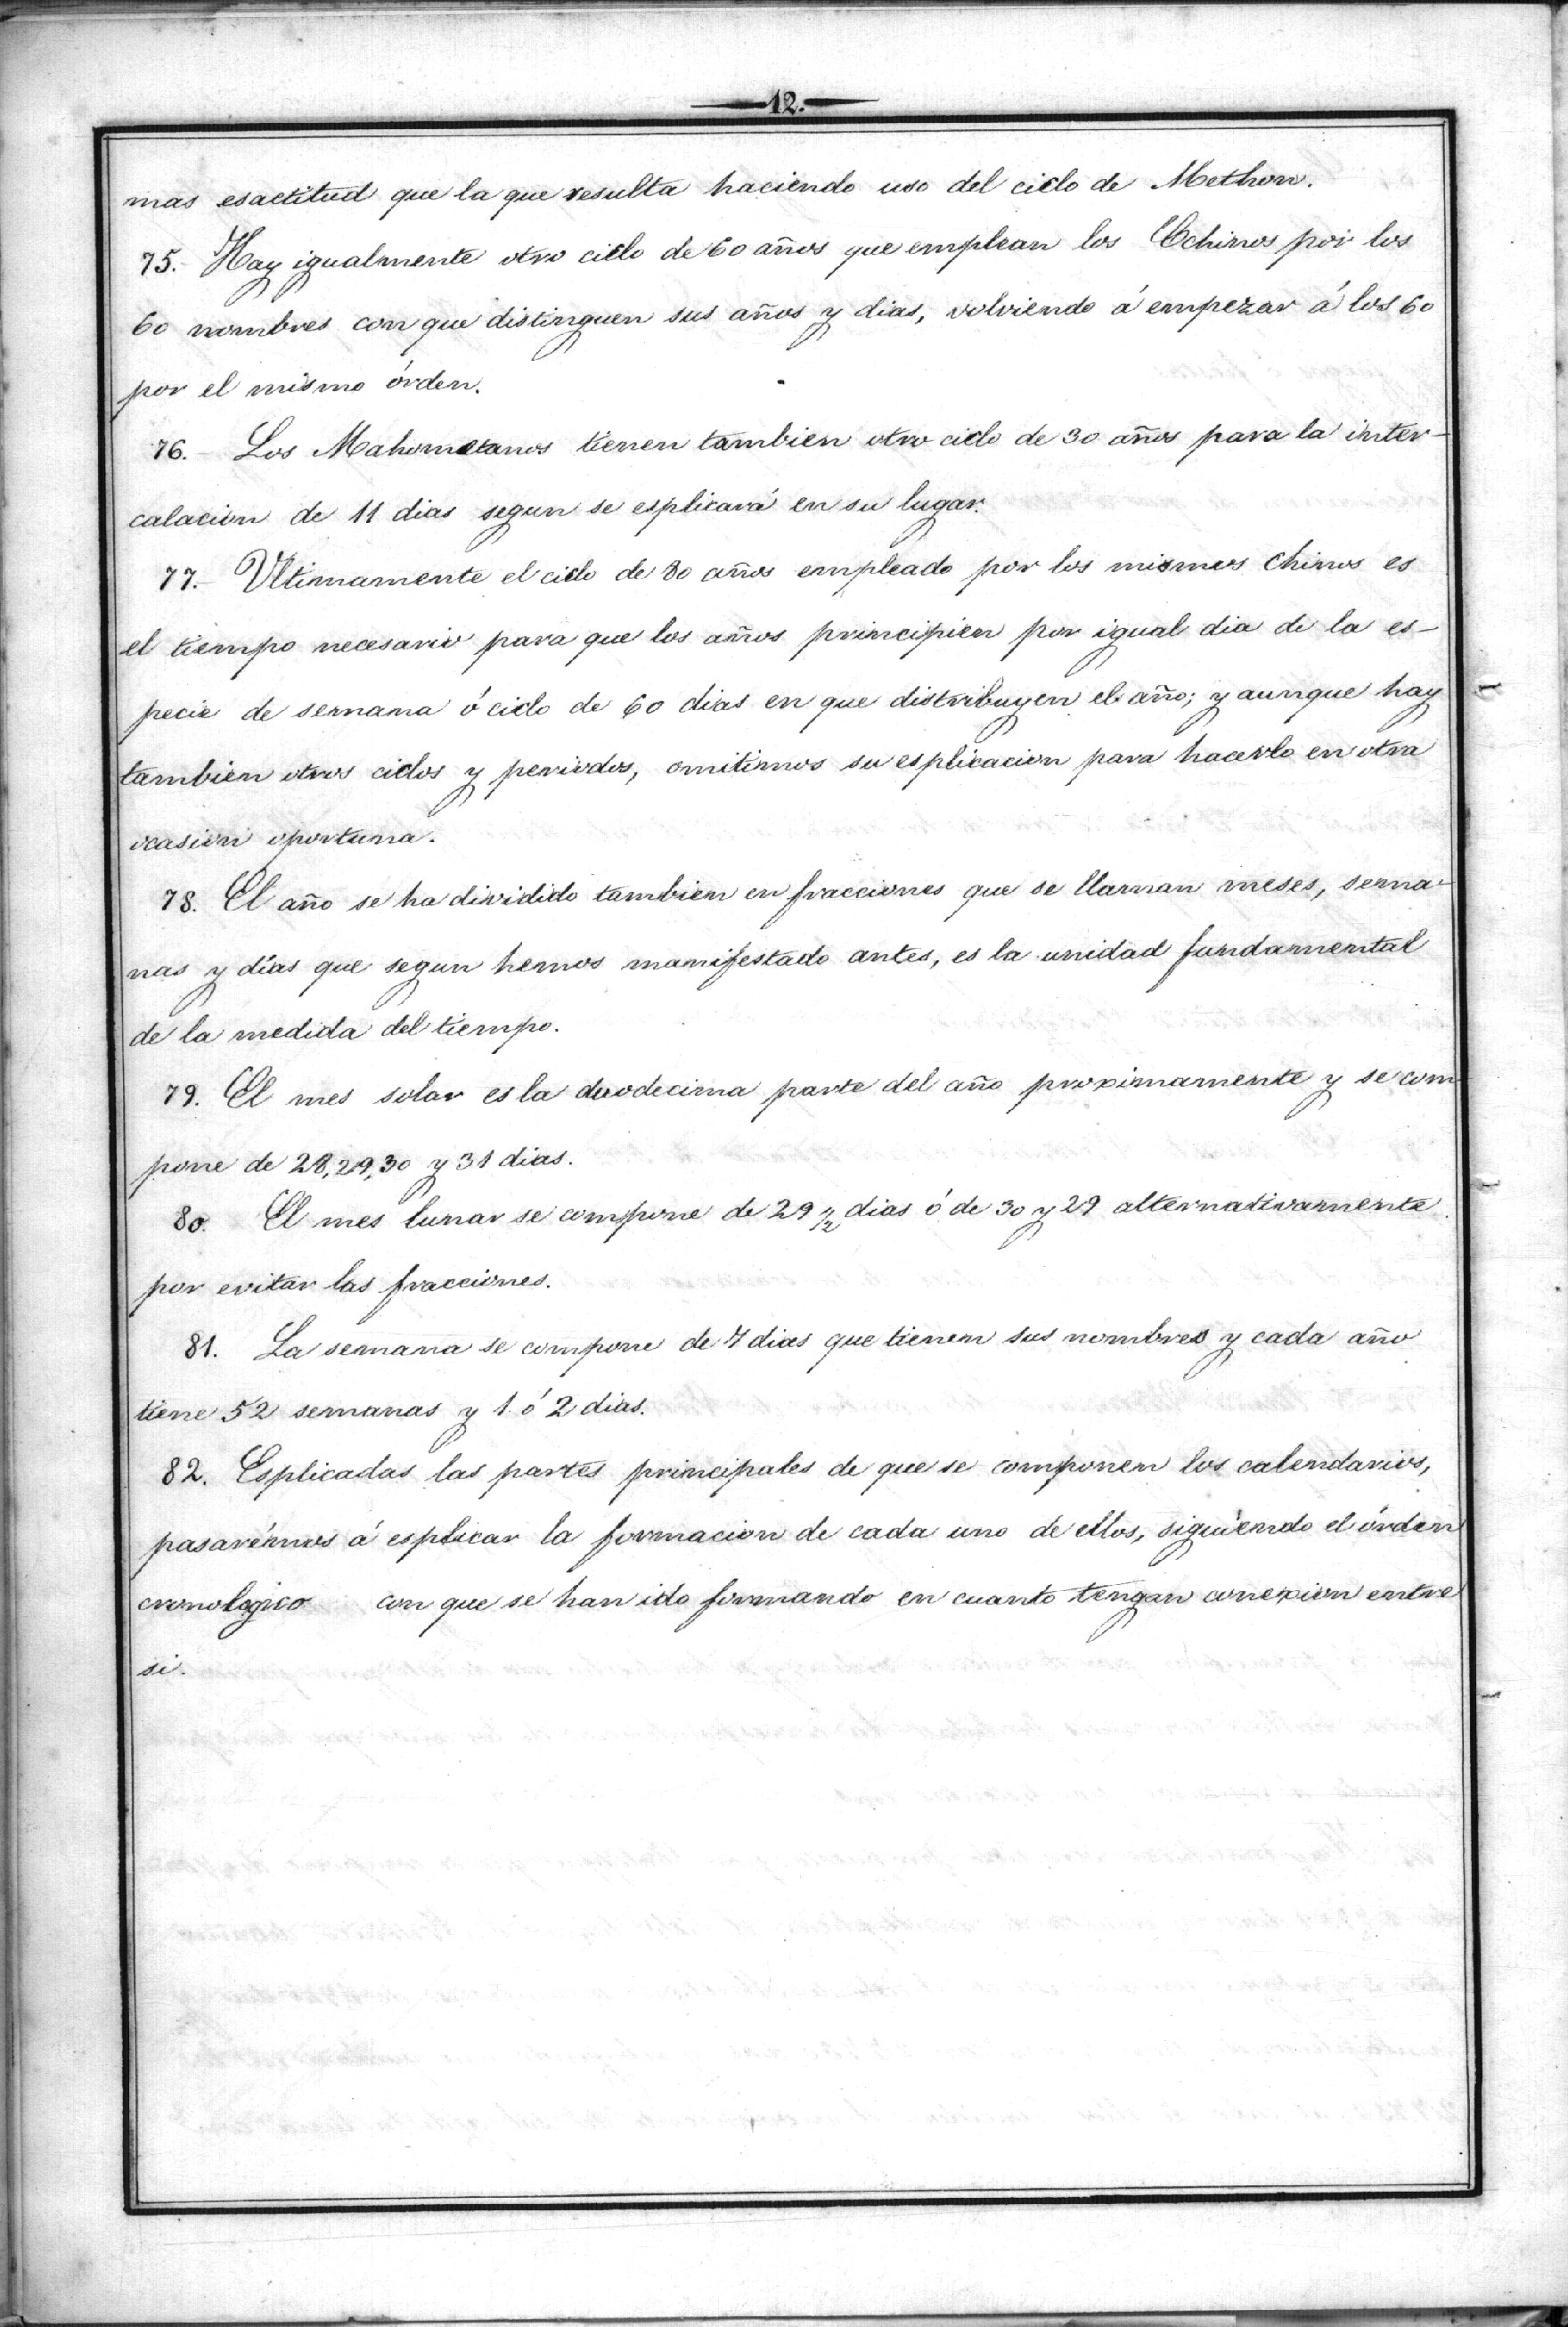 12.
mas esactitud que la que resulta haciendo uso del ciclo de Methon.
75. Hay igualmente otro ciclo de 60 años que emplean los Chinos por los
60 nombres con que distinguen sus años y dias, volviendo á empezar á los 60
por el mismo órden.
76. Los Mahometanos tienen tambien otro ciclo de 30 años para la inter-
calacion de 11 dias segun se esplicará en su lugar.
77. Ultimamente el ciclo de 80 años empleado por los mismos Chinos es
el tiempo necesario para que los años principien por igual dia de la es-
pecie de semana ó ciclo de 60 dias en que distribuyen el año; y aunque hay
tambien otros ciclos y periodos, omitimos su esplicacion para hacerlo en otra
ocasion oportuna.
78. El año se ha dividido tambien en fracciones que se llaman meses, sema-
nas y días que segun hemos manifestado antes, es la unidad fundamental
de la medida del tiempo.
79. El mes solar es la duodecima parte del año proximamente y se com
pone de 28, 29, 30 y 31 dias.
80. El mes lunar se compone de 29 1/2 dias ó de 30 y 29 alternativamente
por evitar las fracciones.
81. La semana se compone de 7 dias que tienen sus nombres y cada año
tiene 52 semanas y 1 ó 2 dias.
82. Esplicadas las partes principales de que se componen los calendarios,
pasarémos á esplicar la formacion de cada uno de ellos, siguiendo el órden
cronologico con que se han ido formando en cuanto tengan conexion entre
si.